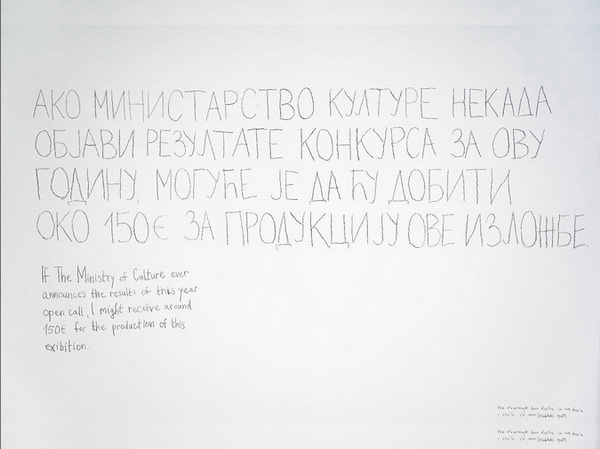 АКО МИНИСТАРСТВО КУЛТУРЕ НЕКАДА
ОБЈАВИ РЕЗУЛТАТЕ КОНКУРСА ЗА ОВУ
ГОДИНУ, МОГУЋЕ ЈЕ ДА ЋУ ДОБИТИ
ОКО 150€ ЗА ПРОДУКЦИЈУ ОВЕ ИЗЛОЖБЕ.
If The Ministry of Culture ever
announces the results of this year
open call, I might receive around
150€ for the production of this
exibition.